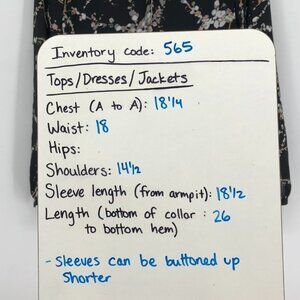 Inventory code: 565
Tops/Dresses/Jackets
Chest (A to A): 18 1/4
Waist: 18
Hips:
Shoulders: 14 1/2
Sleeve length (from armpit): 18 1/2
Length (bottom of collar : 26
to bottom hem)
- Sleeves can be buttoned up
shorter